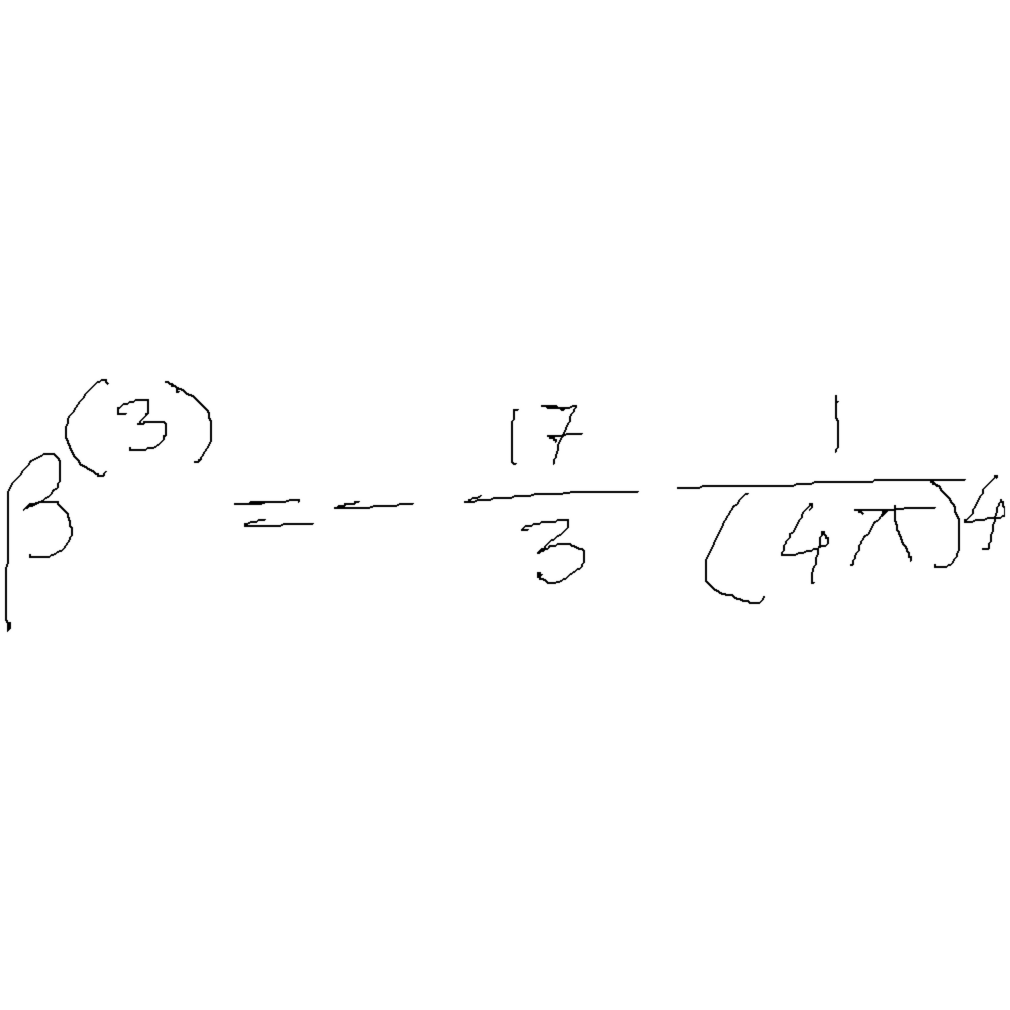 β^{(3)} = - \frac{17}{3} \frac{1}{(4π)^4}